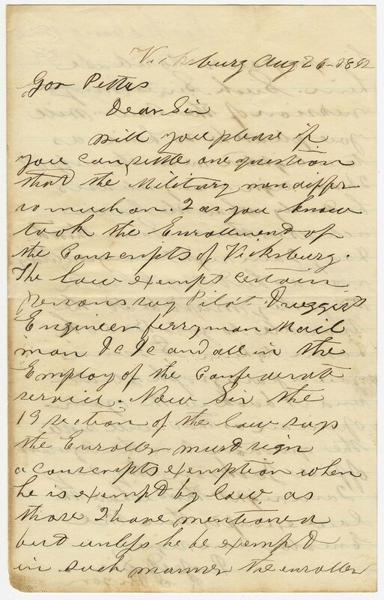 Vicksburg Aug 26 1862
Gov Pettus
Dear Sir
Will you please if
you can settle one question
that the Military men differ
so much on. I as you know
took the Enrollment of
the Conscripts of Vicksburg.
The law exempts certain
persons say Pilot Druggist
Engineer ferryman Mail
man &c &c and all in the
Employ of the Confederate
service. Now Sir the
19 section of the law says
the Enroller must sign
a conscripts exemption when
he is exempt by law as
those I have mentioned
but unless he be exempt
in such manner the enroller